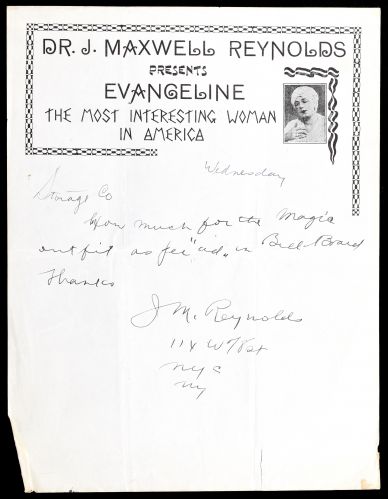 DR. J. MAXWELL REYNOLDS
PRESENTS
EVANGELINE
THE MOST INTERESTING WOMAN
IN AMERICA
Wednesday
Storage Co
How much for the Magic
outfit as per "ad" in Bill Board
Thanks
J M. Reynolds
114 W 78 st
NYC
NY